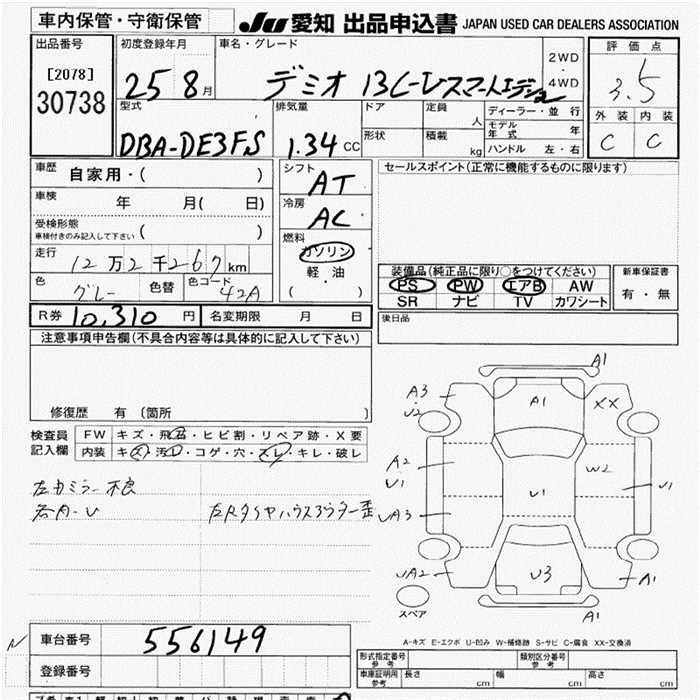 車内保管・守衛保管
JU 愛知 出品申込書 JAPAN USED CAR DEALERS ASSOCIATION
出品番号
[2078]
30738
初度登録年月
25 8月
車名・グレード
デミオ 13C-Vスマートエディ
2WD
・
4WD
評価点
3.5
外装 内装
C C
型式
DBA-DE3FS
排気量
1.34 CC
ドア
形状
定員
人
積載
kg
ディーラー・並行
モデル年式 年
ハンドル 左・右
車歴
自家用・( )
車検
年 月( 日)
受検形態
車検付きのみ記入して下さい ( )
走行
12万2千267km
色
グレー
色替
色コード
42A
シフト
AT
冷房
AC
燃料
ガソリン
軽・油
( )
セールスポイント(正常に機能するものに限ります)
装備品(純正品に限り○をつけてください)
PS PW エアB AW
SR ナビ TV カワシート
新車保証書
有・無
R券 10,310 円
名変期限 月 日
後日品
注意事項申告欄(不具合内容等は具体的に記入して下さい)
修復歴 有 (箇所 )
検査員
記入欄
FW キズ・飛石・ヒビ割・リペア跡・X要
内装 キズ・汚れ・コゲ・穴・スレ・キレ・破レ
左カミラー不良
右A-U
左Rタイヤハウスアウター歪
A1
A3
U2
A1
XX
A2
U1
W2
U1
U1
UA3
UA2
U3
A1
A1
スペア
A-キズ E-エクボ U-凹み W-補修跡 S-サビ C-腐食 XX-交換済
車台番号
556149
登録番号
形式指定番号
参考
類別区分番号
参考
車庫証明用
参考
長さ cm 幅 cm 高さ cm